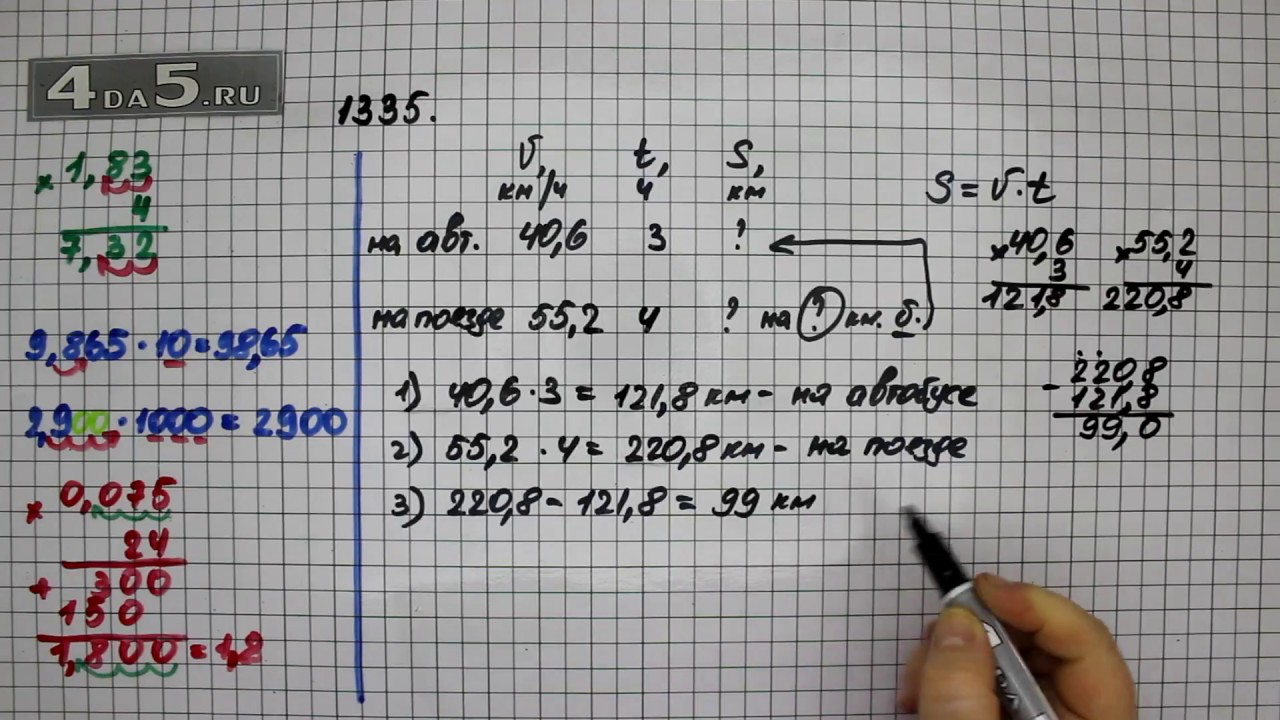 4DA5.RU
1335.
× 1,83
4
7,32
9,865 · 10 = 98,65
2,900 · 1000 = 2900
× 0,075
24
+ 300
150
1,800 = 1,8
V, t, S,
км/ч ч км
на авт. 40,6 3 ?
на поезде 55,2 4 ? на ? км. б.
1) 40,6 · 3 = 121,8 км - на автобусе
2) 55,2 · 4 = 220,8 км - на поезде
3) 220,8 - 121,8 = 99 км
S = V · t
× 40,6
3
121,8
× 55,2
4
220,8
- 220,8
121,8
99,0